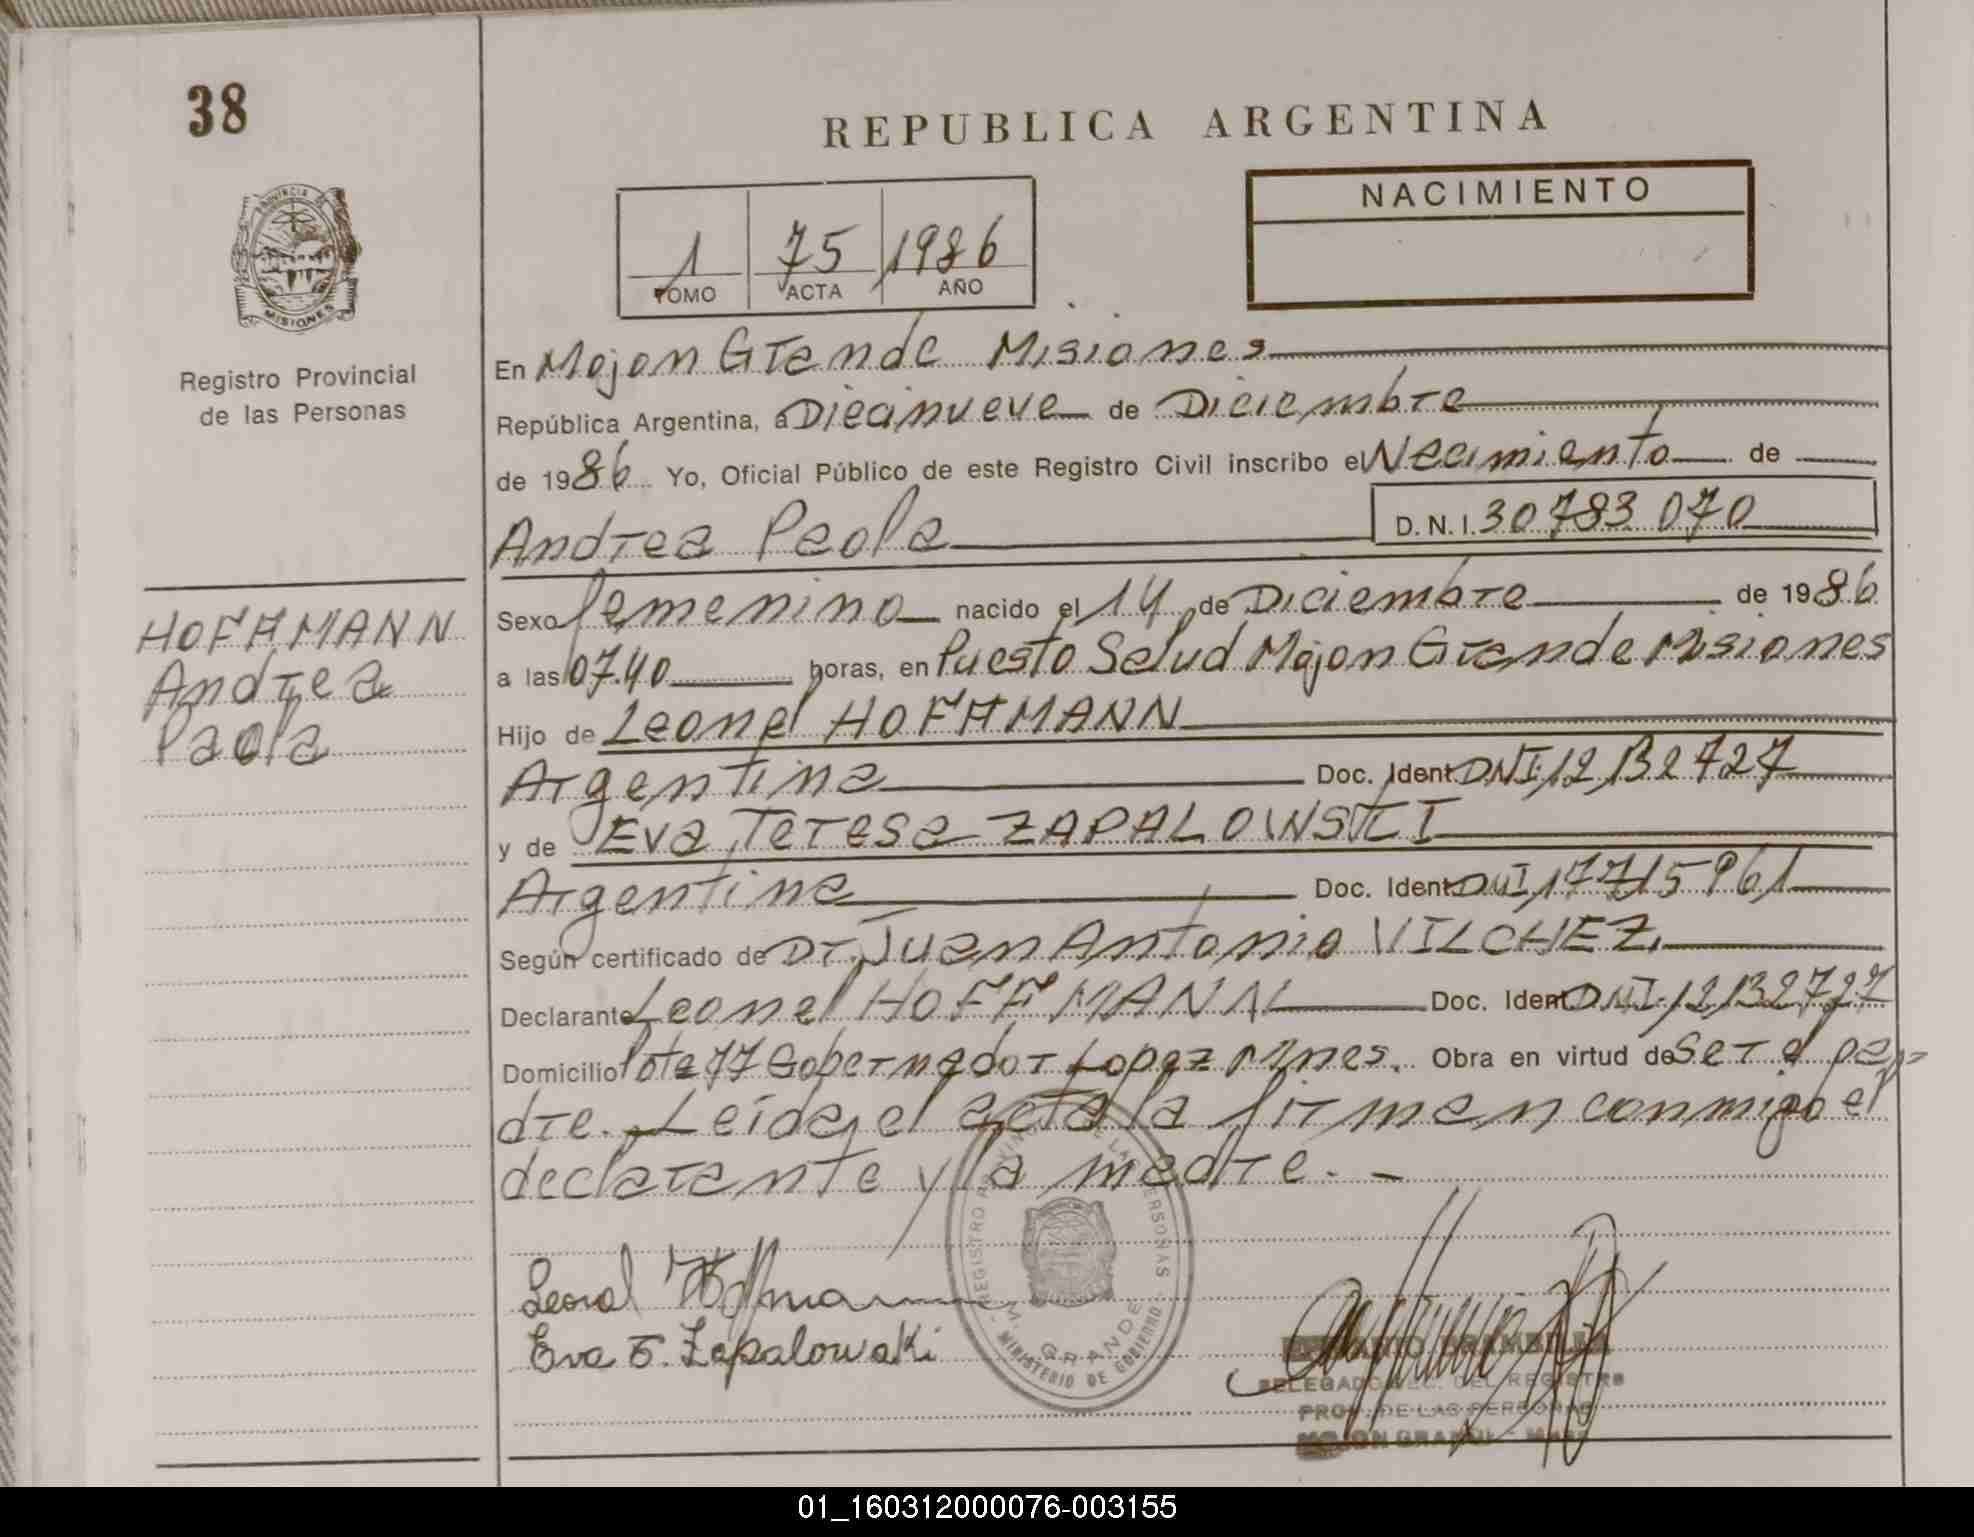 38
REPUBLICA ARGENTINA
PROVINCIA
MISIONES
Registro Provincial
de las Personas
NACIMIENTO
1 75 1986
TOMO ACTA AÑO
En Mojon Grande Misiones
República Argentina, a Diecinueve de Diciembre
de 1986 Yo, Oficial Público de este Registro Civil inscribo el Nacimiento de
Andrea Paola D.N.I. 30783 070
HOFFMANN
Andrea
Paola
Sexo femenino nacido el 14 de Diciembre de 1986
a las 07.40 horas, en Puesto Salud Mojon Grande Misiones
Hijo de Leonel HOFFMANN
Argentina Doc. Ident. DNI.12132727
y de Eva Teresa ZAPALOWSKI
Argentina Doc. Ident. DNI 17715961
Según certificado de Dr. Juan Antonio VILCHEZ.
Declarante Leonel HOFFMANN Doc. Ident. DNI.12132727
Domicilio lote 77 Gobernador Lopez Mnes. Obra en virtud de Ser el pa
dre. Leída el acta la firman conmigo el
declarante y la madre. -
Leonel Hoffmann
Eva T. Zapalowski
REGISTRO PROVINCIAL DE LAS PERSONAS
M. GRANDE
MINISTERIO DE GOBIERNO
DELEGADO SEC. DEL REGISTRO
PROV. DE LAS PERSONAS
MOJON GRANDE - MNES
01_160312000076-003155